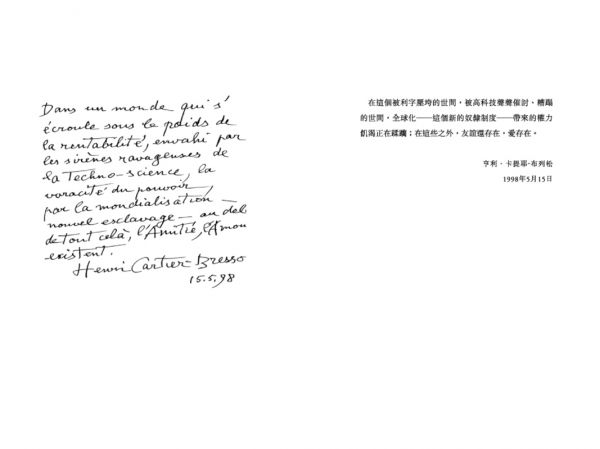 Dans un monde qui s'
écroule sous le poids de
la rentabilité, envahi par
les sirènes ravageuses de
la Techno-science, la
voracité du pouvoir,
par la mondialisation —
nouvel esclavage — au del
de tout celà, l'Amitié, l'Amou
existent.
Henri Cartier-Bresso
15.5.98
在這個被利字壓垮的世間，被高科技聲聲催討、糟蹋
的世間，全球化——這個新的奴隸制度——帶來的權力
飢渴正在蹂躪；在這些之外，友誼還存在，愛存在。
亨利・卡提耶-布列松
1998年5月15日